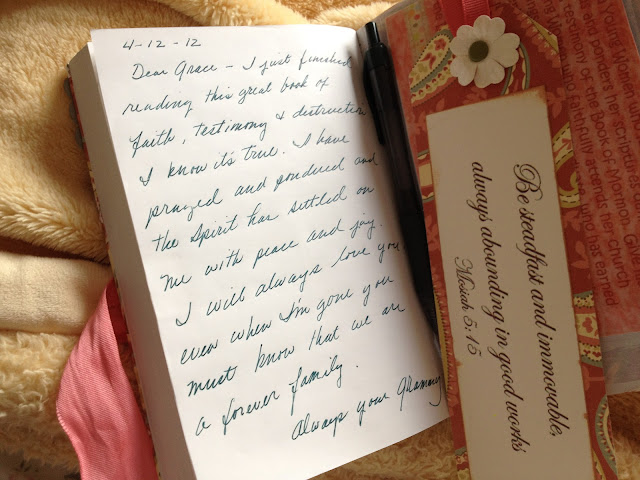 4-12-12
Dear Grace - I just finished
reading this great book of
faith, testimony & distruction
I know it's true. I have
prayed and pondered and
the Spirit has settled on
me with peace and joy.
I will always love you
even when I'm gone you
must know that we are
a forever family.
Always your Grammy
Be steadfast and immovable,
always abounding in good works
Mosiah 5:15
and ponders her scriptures
testimony of the Book of Mormon
who faithfully attends her church
who has earned